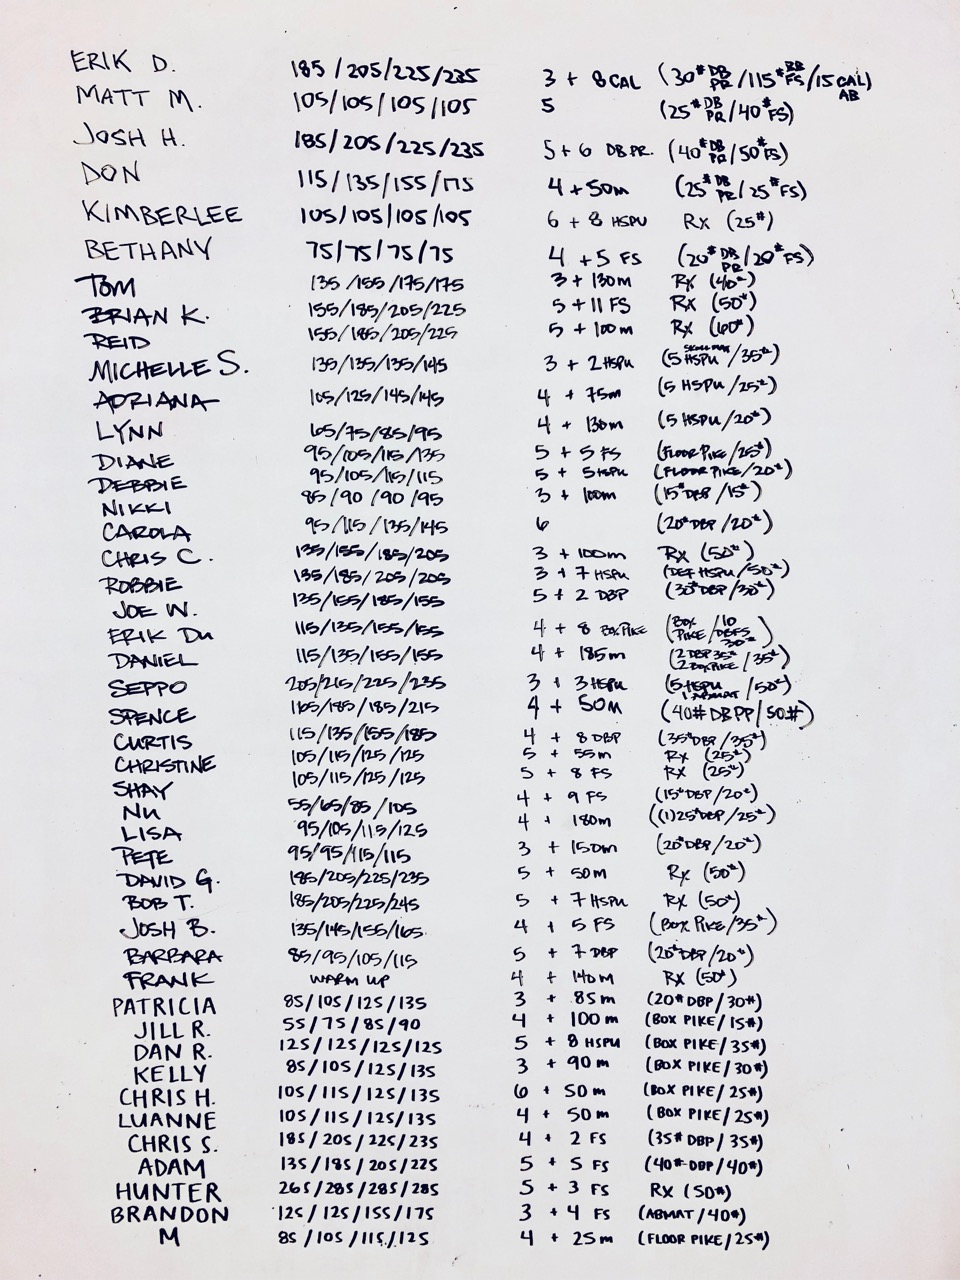 ERIK D. 185/205/225/235 3 + 8 CAL (30# DB PR/115# BB FS/15 CAL AB)
MATT M. 105/105/105/105 5 (25# DB PR/40# FS)
JOSH H. 185/205/225/235 5+6 DB PR. (40# DB PR/50# FS)
DON 115/135/155/175 4 + 50m (25# DB PR/25# FS)
KIMBERLEE 105/105/105/105 6 + 8 HSPU Rx (25#)
BETHANY 75/75/75/75 4 + 5 FS (20# DB PR/20# FS)
TOM 135/155/175/175 3 + 130m Rx (40#)
BRIAN K. 155/185/205/225 5 + 11 FS Rx (50#)
REID 155/185/205/225 5 + 100m Rx (60#)
MICHELLE S. 135/135/135/145 3 + 2 HSPU (5 HSPU/35#)
ADRIANA 105/125/145/145 4 + 75m (5 HSPU/25#)
LYNN 65/75/85/95 4 + 130m (5 HSPU/20#)
DIANE 95/105/115/135 5 + 5 FS (FLOOR PIKE/25#)
DEBBIE 95/105/115/115 5 + 5 HSPU (FLOOR PIKE/20#)
NIKKI 85/90/90/95 3 + 100m (15# DBP/15#)
CAROLA 95/115/135/145 6 (20# DBP/20#)
CHRIS C. 135/155/185/205 3 + 100m Rx (50#)
ROBBIE 135/185/205/205 3 + 7 HSPU (DEF HSPU/50#)
JOE W. 135/155/185/155 5 + 2 DBP (30# DBP/30#)
ERIK DU 115/135/155/155 4 + 8 BOX PIKE (BOX PIKE/10 DBFS 30#)
DANIEL 115/135/155/155 4 + 185m (2 DBP 35# 2 BOX PIKE/35#)
SEPPO 205/215/225/235 3 + 3 HSPU (5 HSPU 1 ABMAT/50#)
SPENCE 165/185/185/215 4 + 50M (40# DBPP/50#)
CURTIS 115/135/155/185 4 + 8 DBP (35# DBP/35#)
CHRISTINE 105/115/125/125 5 + 55m Rx (25#)
SHAY 105/115/125/125 5 + 8 FS Rx (25#)
NU 55/65/85/105 4 + 9 FS (15# DBP/20#)
LISA 95/105/115/125 4 + 180m ((1)25# DBP/25#)
PETE 95/95/115/115 3 + 150m (20# DBP/20#)
DAVID G. 185/205/225/235 5 + 50m Rx (50#)
BOB T. 185/205/225/245 5 + 7 HSPU Rx (50#)
JOSH B. 135/145/155/165 4 + 5 FS (BOX PIKE/35#)
BARBARA 85/95/105/115 5 + 7 DBP (20# DBP/20#)
FRANK WARM UP 4 + 140m Rx (50#)
PATRICIA 85/105/125/135 3 + 85m (20# DBP/30#)
JILL R. 55/75/85/90 4 + 100m (BOX PIKE/15#)
DAN R. 125/125/125/125 5 + 8 HSPU (BOX PIKE/35#)
KELLY 85/105/125/135 3 + 90m (BOX PIKE/30#)
CHRIS H. 105/115/125/135 6 + 50m (BOX PIKE/25#)
LUANNE 105/115/125/135 4 + 50m (BOX PIKE/25#)
CHRIS S. 185/205/225/235 4 + 2 FS (35# DBP/35#)
ADAM 135/185/205/225 5 + 5 FS (40# DBP/40#)
HUNTER 265/285/285/285 5 + 3 FS Rx (50#)
BRANDON 125/125/155/175 3 + 4 FS (ABMAT/40#)
M 85/105/115/125 4 + 25m (FLOOR PIKE/25#)